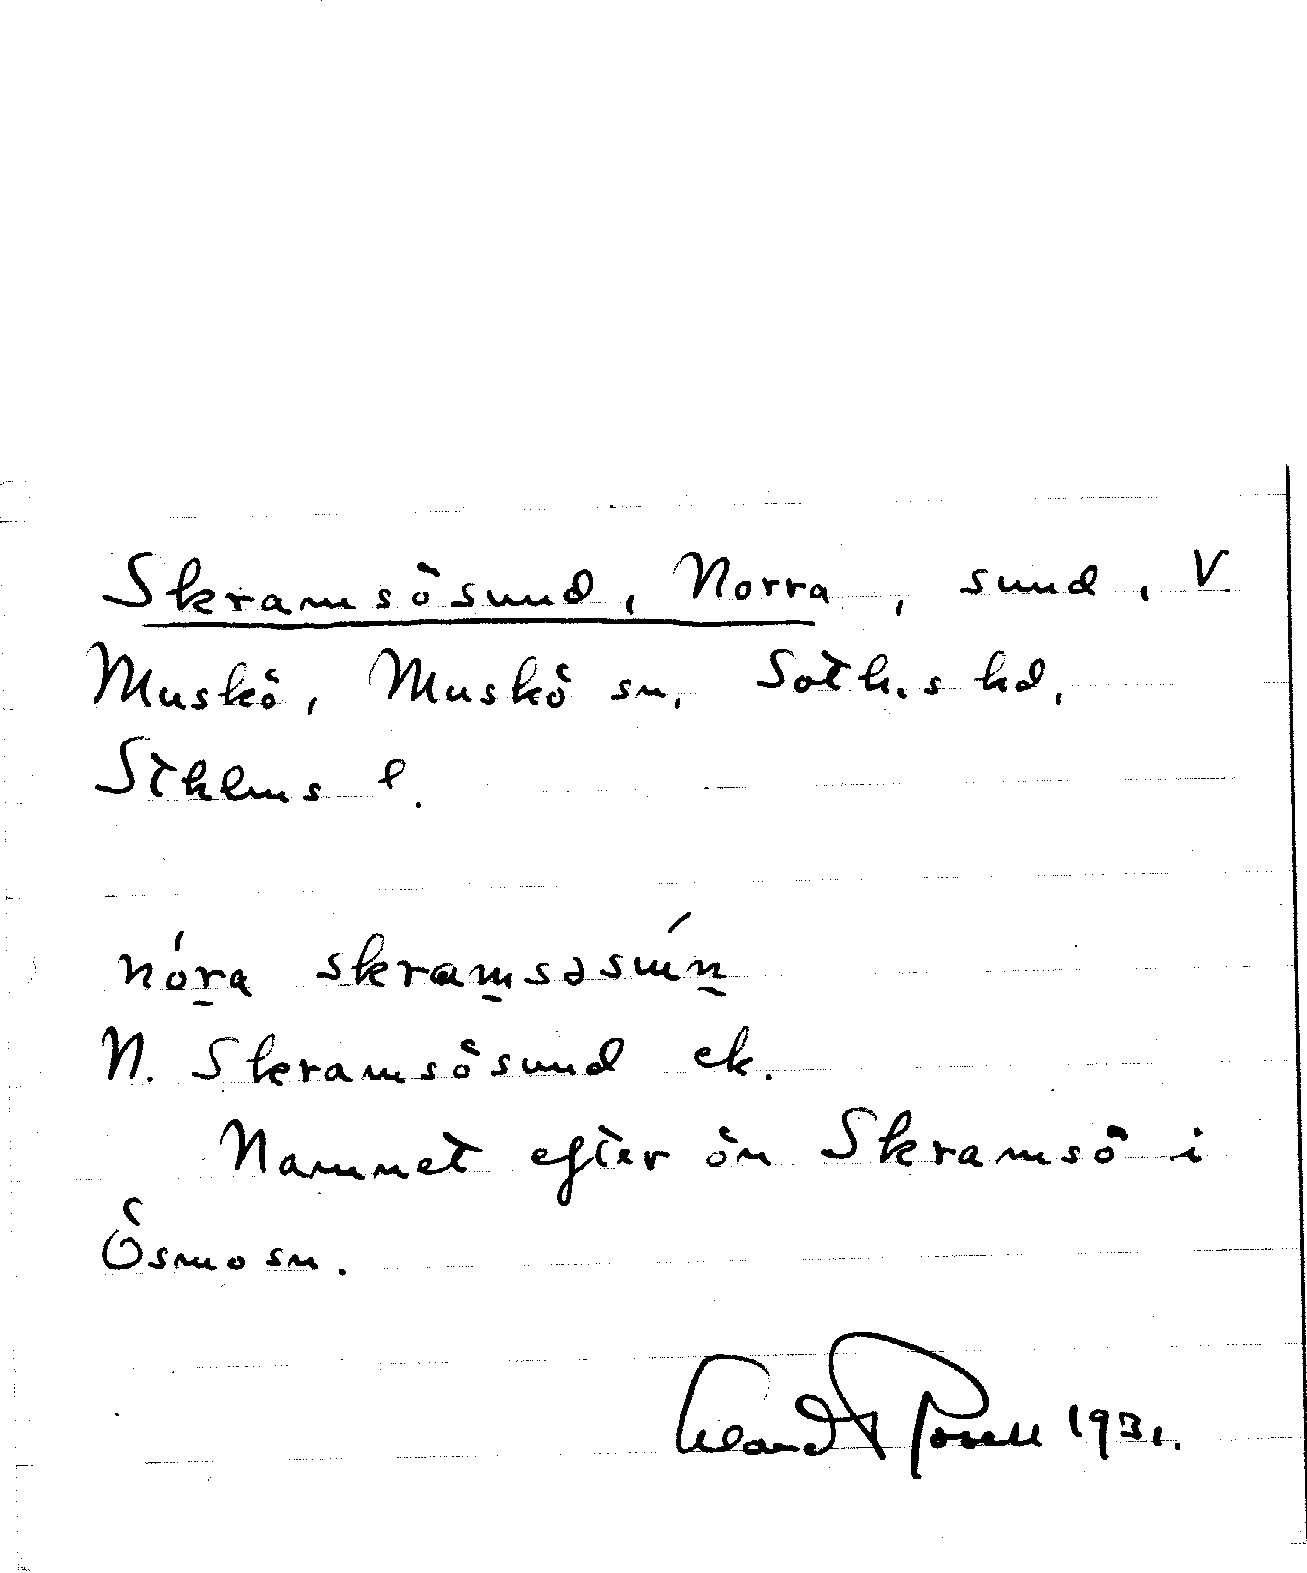 Skramsösund, Norra, sund, V
Muskö, Muskö sn, Soth.s hd,
Sthlms l.
nóra skramsəsún
N. Skramsösund ek.
Namnet efter ön Skramsö i
Ösmo sn.
1931.